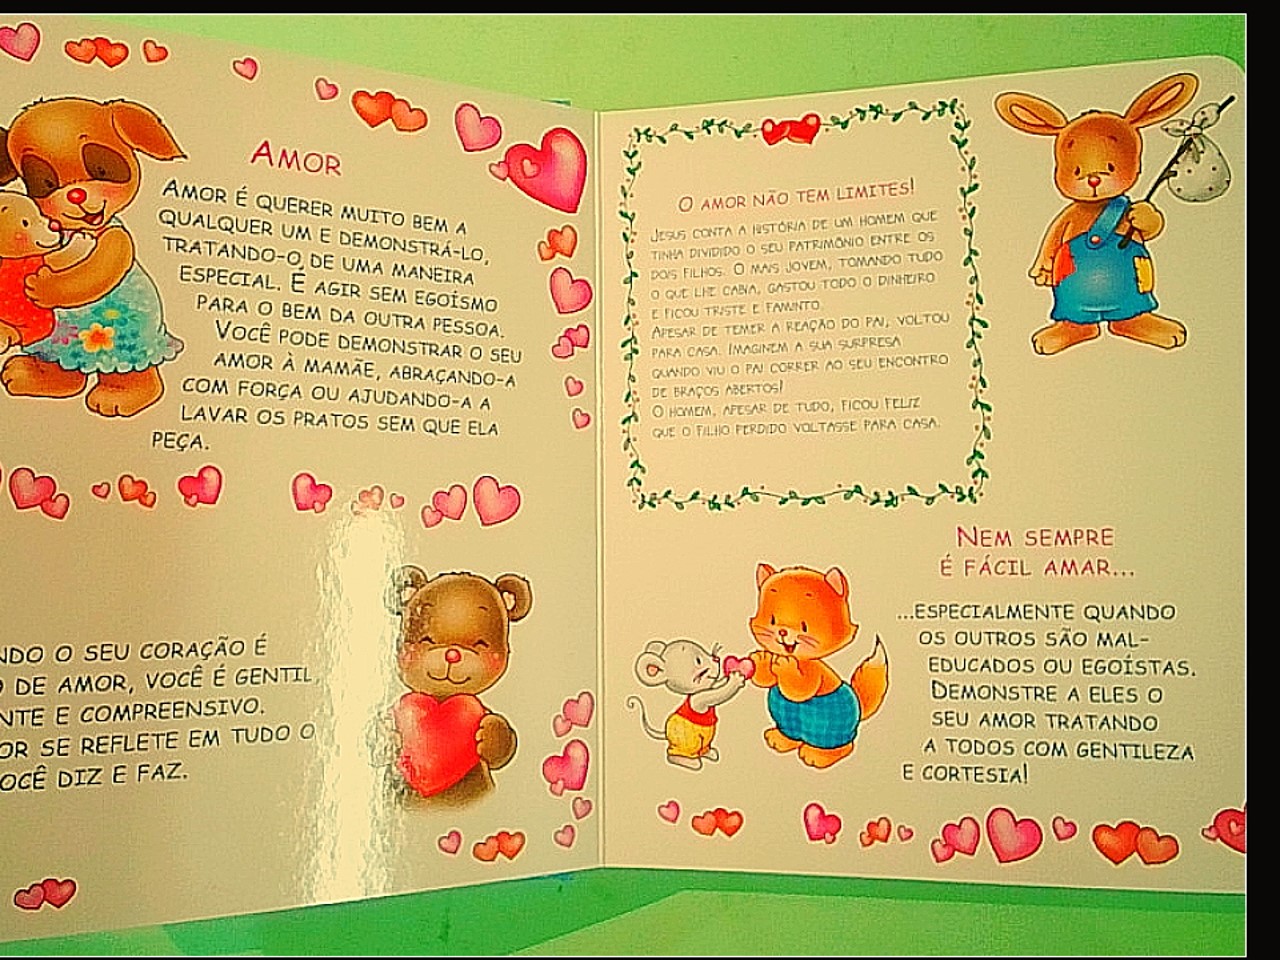 AMOR
AMOR É QUERER MUITO BEM A
QUALQUER UM E DEMONSTRÁ-LO,
TRATANDO-O DE UMA MANEIRA
ESPECIAL. É AGIR SEM EGOÍSMO
PARA O BEM DA OUTRA PESSOA.
VOCÊ PODE DEMONSTRAR O SEU
AMOR À MAMÃE, ABRAÇANDO-A
COM FORÇA OU AJUDANDO-A A
LAVAR OS PRATOS SEM QUE ELA
PEÇA.
NDO O SEU CORAÇÃO É
O DE AMOR, VOCÊ É GENTIL,
NTE E COMPREENSIVO.
OR SE REFLETE EM TUDO O
OCÊ DIZ E FAZ.
O AMOR NÃO TEM LIMITES!
JESUS CONTA A HISTÓRIA DE UM HOMEM QUE
TINHA DIVIDIDO O SEU PATRIMÔNIO ENTRE OS
DOIS FILHOS. O MAIS JOVEM, TOMANDO TUDO
O QUE LHE CABIA, GASTOU TODO O DINHEIRO
E FICOU TRISTE E FAMINTO.
APESAR DE TEMER A REAÇÃO DO PAI, VOLTOU
PARA CASA. IMAGINEM A SUA SURPRESA
QUANDO VIU O PAI CORRER AO SEU ENCONTRO
DE BRAÇOS ABERTOS!
O HOMEM, APESAR DE TUDO, FICOU FELIZ
QUE O FILHO PERDIDO VOLTASSE PARA CASA.
NEM SEMPRE
É FÁCIL AMAR...
...ESPECIALMENTE QUANDO
OS OUTROS SÃO MAL-
EDUCADOS OU EGOÍSTAS.
DEMONSTRE A ELES O
SEU AMOR TRATANDO
A TODOS COM GENTILEZA
E CORTESIA!